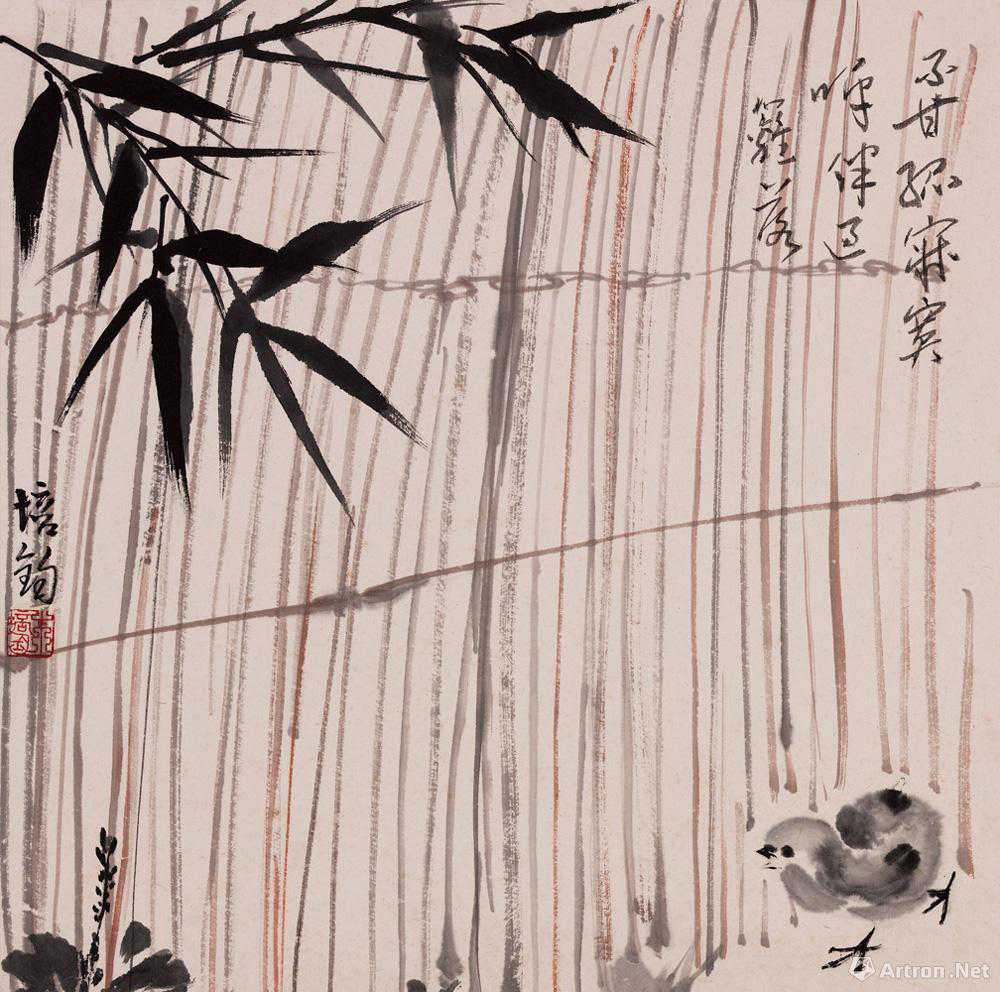 不甘孤寂寞
呼伴過
籬落
培鈞
Artron.Net